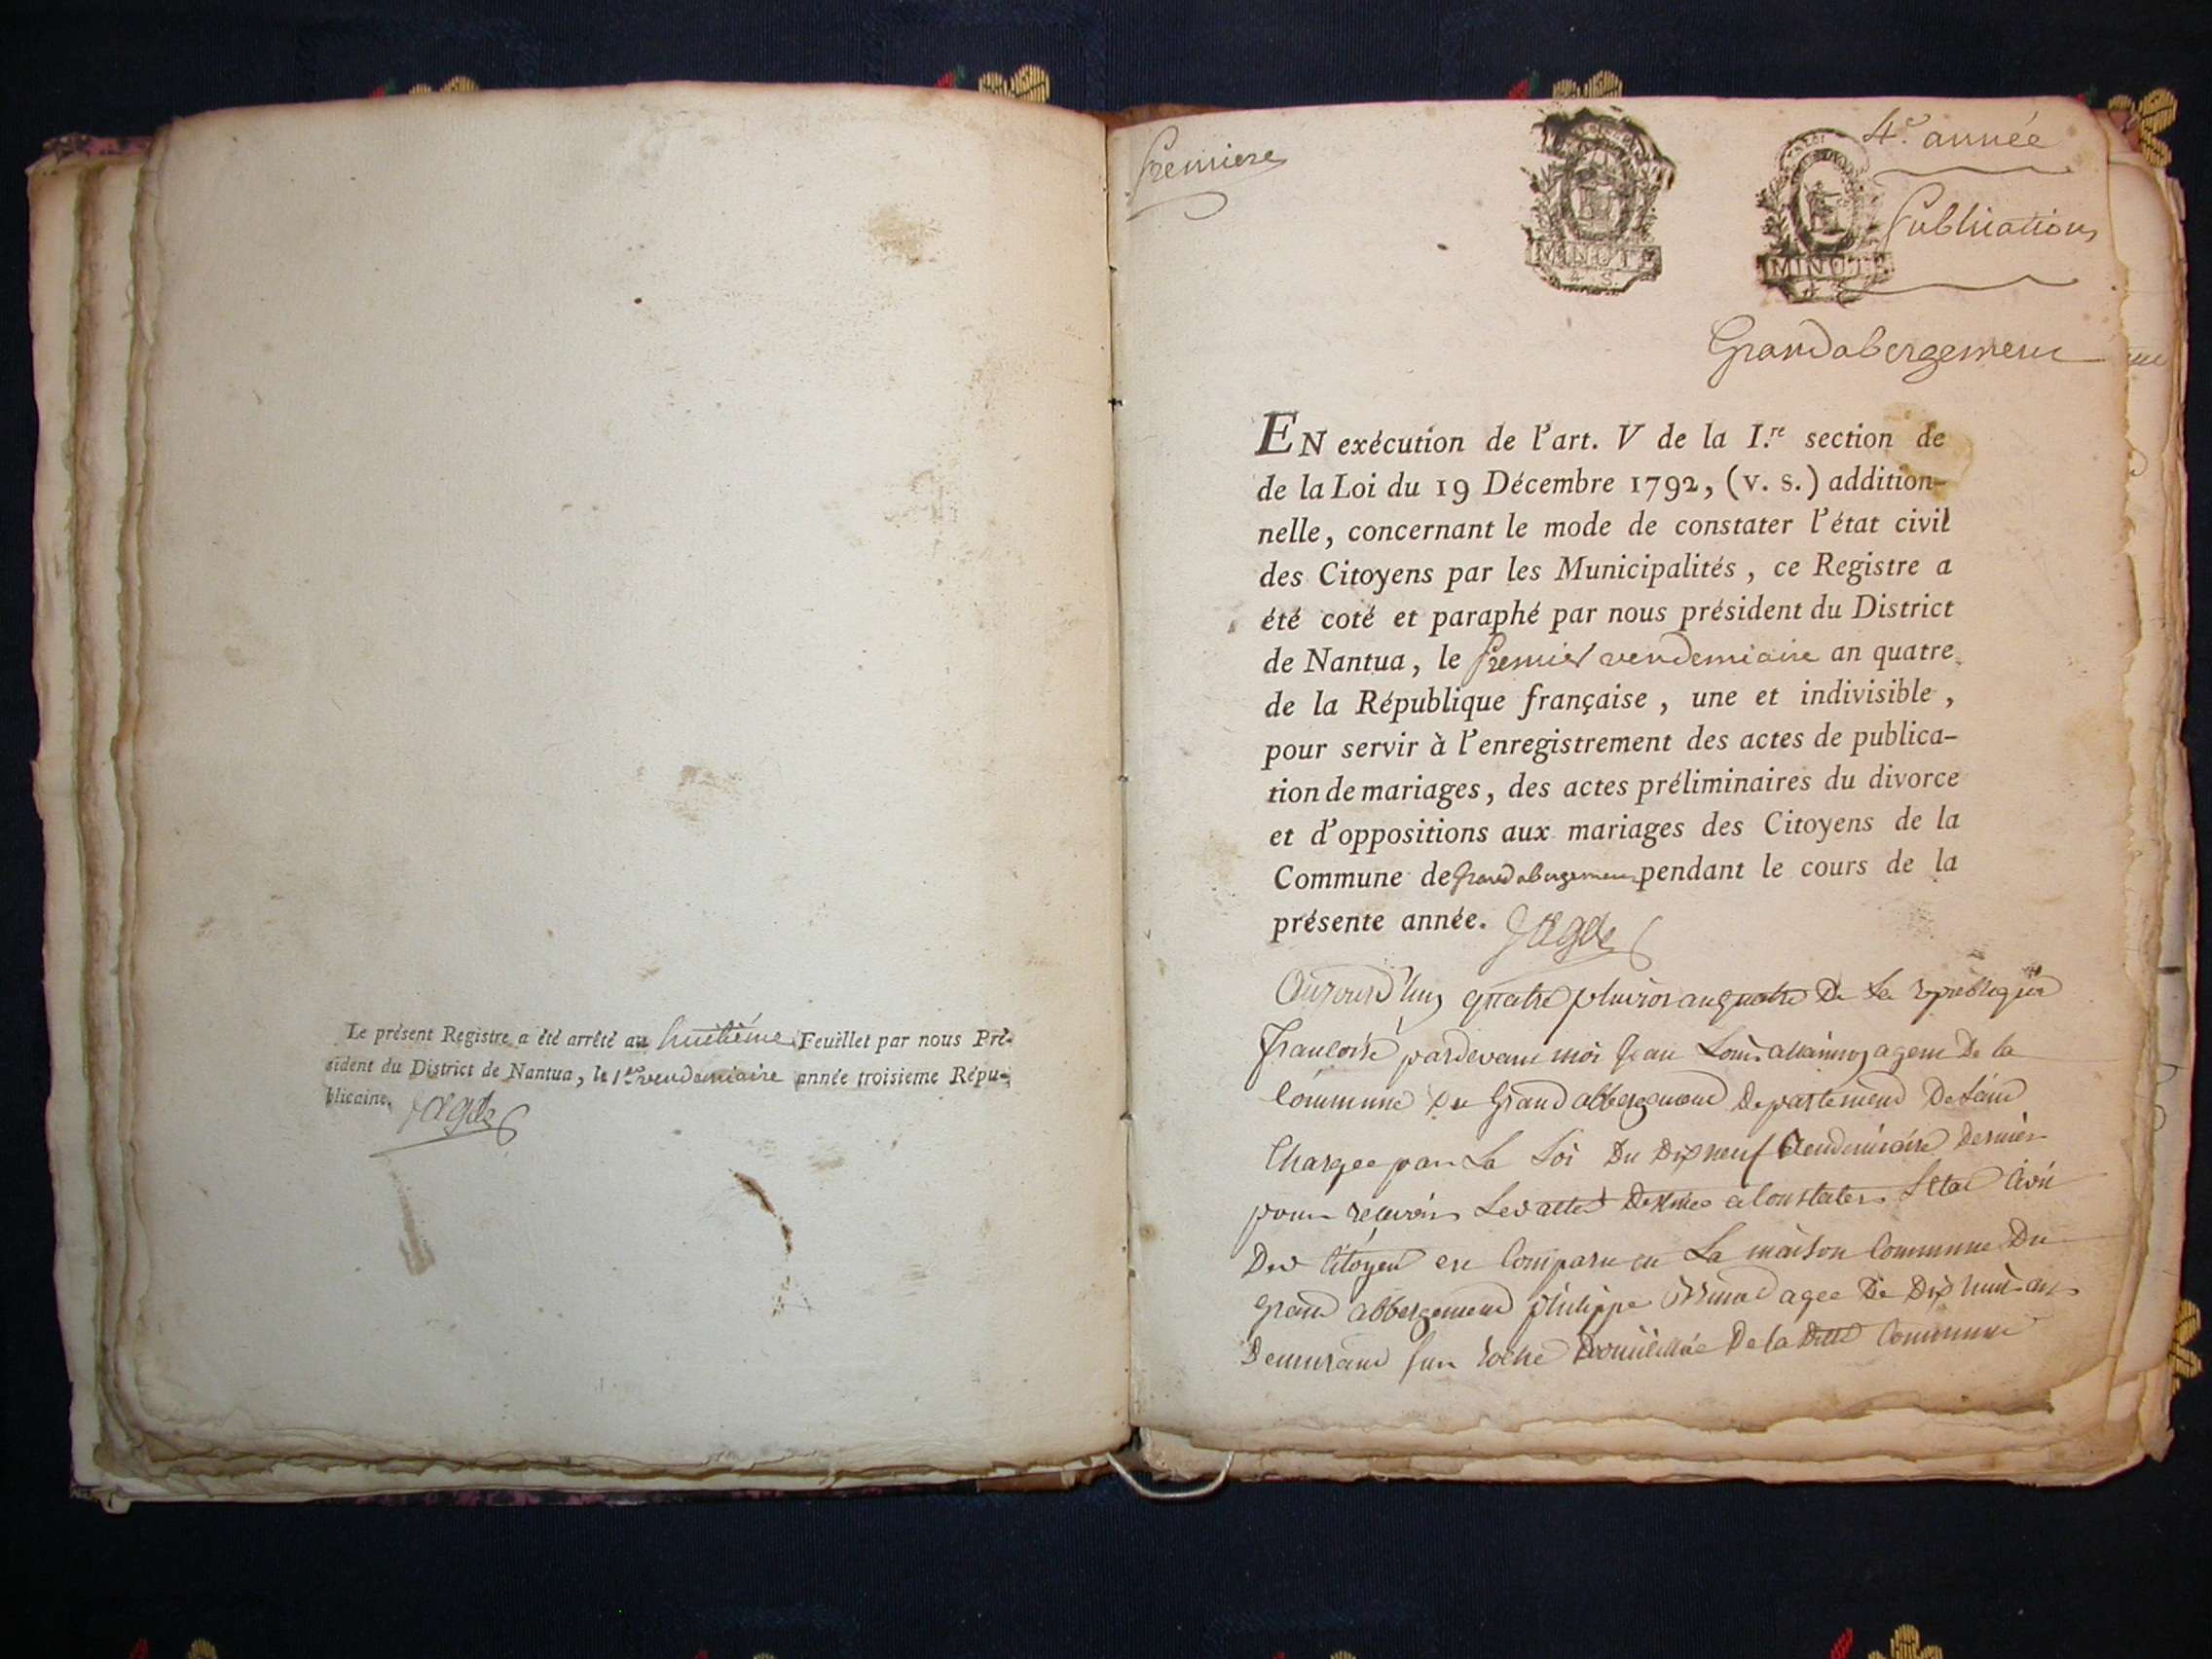 Le présent Registre a été arrêté au huitième Feuillet par nous Pré-
sident du District de Nantua, le 1er vendemiaire année troisieme Répu-
blicaine.
Premiere
4e. année
Publications
MINUTE
MINUTE
Grandabergement
EN exécution de l'art. V de la I.re section de
de la Loi du 19 Décembre 1792, (v. s.) addition-
nelle, concernant le mode de constater l'état civil
des Citoyens par les Municipalités, ce Registre a
été coté et paraphé par nous président du District
de Nantua, le premier vendemiaire an quatre
de la République française, une et indivisible,
pour servir à l'enregistrement des actes de publica-
tion de mariages, des actes préliminaires du divorce
et d'oppositions aux mariages des Citoyens de la
Commune de Grandabergement pendant le cours de la
présente année.
quatre pluvios an quatre De La
pardevant moi Jean Louis agent De la
Commune Du Grand abbergement Departement De
Chargee par La Loi Du Dixneuf Vendemiaire dernier
pour recevoir a Constater
Des Citoyen Comparu en La maison Commune Du
Grand abbergement philippe agee De Dix huit ans
Demurant sur De la Commune